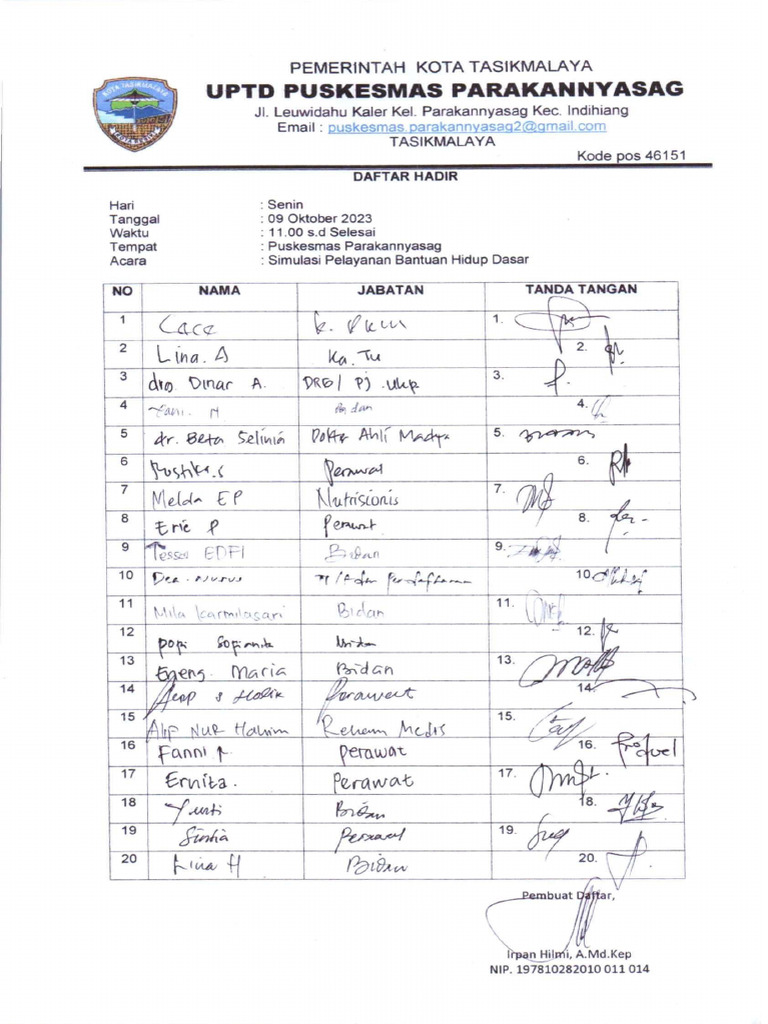 PEMERINTAH KOTA TASIKMALAYA
UPTD PUSKESMAS PARAKANNYASAG
Jl. Leuwidahu Kaler Kel. Parakannyasag Kec. Indihiang
Email : puskesmas.parakannyasag2@gmail.com
TASIKMALAYA
Kode pos 46151
KOTA TASIKMALAYA
DAFTAR HADIR
Hari : Senin
Tanggal : 09 Oktober 2023
Waktu : 11.00 s.d Selesai
Tempat : Puskesmas Parakannyasag
Acara : Simulasi Pelayanan Bantuan Hidup Dasar
NO NAMA JABATAN TANDA TANGAN
1 Cace 1.
2 Lina. A Ka. Tu 2.
3 drg Dinar A. DRG / PJ. UKP 3.
4 Fani. N Bidan 4.
5 dr. Beta Selinia Dokter Ahli Madya 5.
6 Rostika.s Perawat 6.
7 Melda EP Nutrisionis 7.
8 Eric P Perawat 8.
9 Tessa EDFI Bidan 9.
10 10.
11 Mila Karmilasari Bidan 11.
12 popi Bidan 12.
13 Egeng. Maria Bidan 13.
14 Perawat 14.
15 Alip NUR Hakim Rekam Medis 15.
16 Fanni Perawat 16.
17 Ernita. Perawat 17.
18 Yunti Bidan 18.
19 Sintia Perawat 19.
20 Lina H Bidan 20.
Pembuat Daftar,
Irpan Hilmi, A.Md.Kep
NIP. 197810282010 011 014